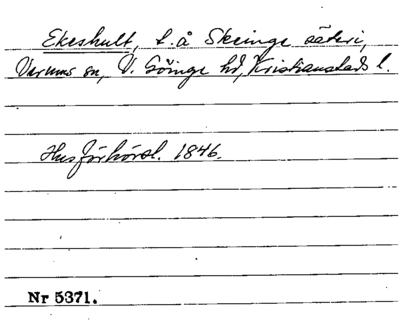 Ekeshult, t. å Skeinge säteri,
Verums sn, V. Göinge hd, Kristianstads l.
Husförhörsl. 1846.
Nr 5371.